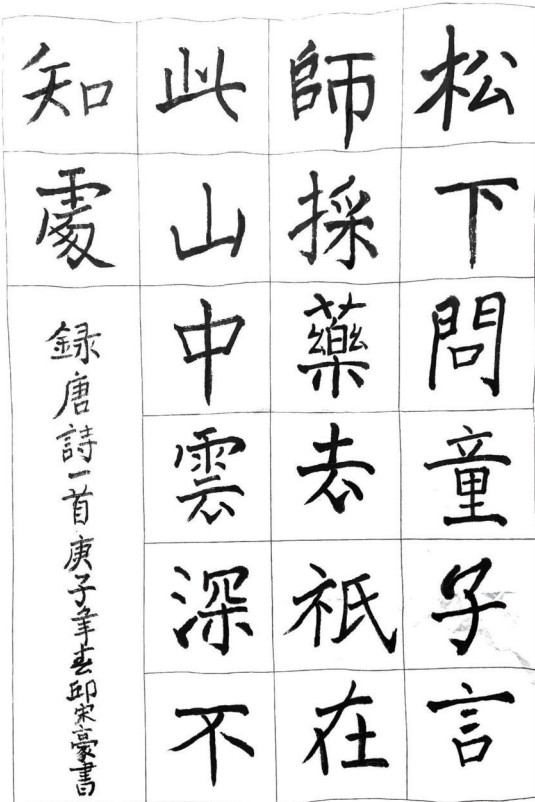 松下問童子言
師採藥去祇在
此山中雲深不
知處
録唐詩一首庚子年春邱宋豪書